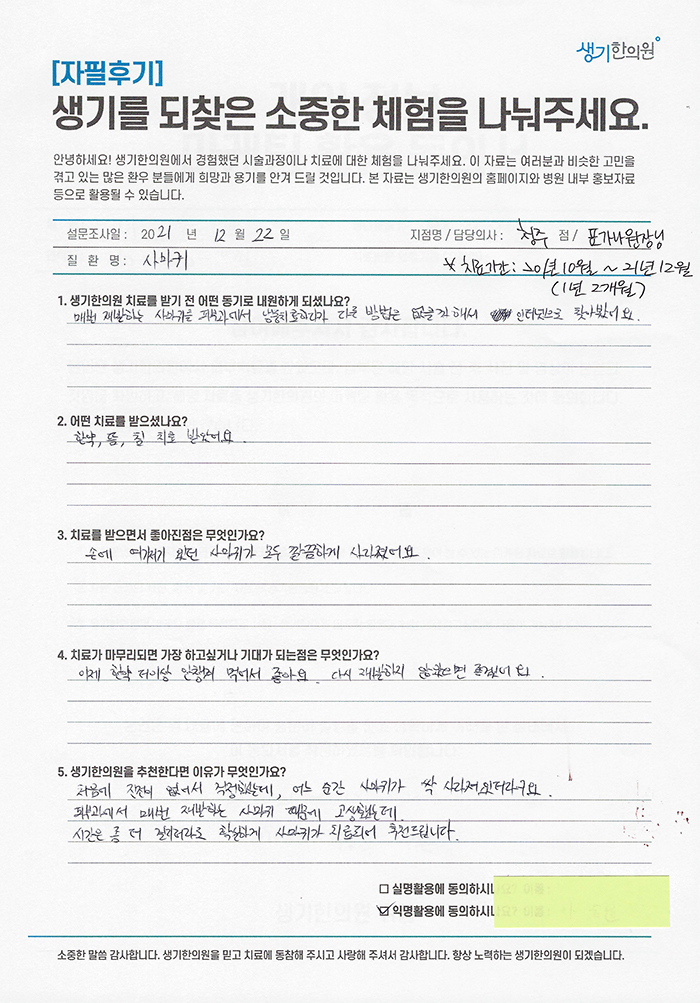 생기한의원
[자필후기]
생기를 되찾은 소중한 체험을 나눠주세요.
안녕하세요! 생기한의원에서 경험했던 시술과정이나 치료에 대한 체험을 나눠주세요. 이 자료는 여러분과 비슷한 고민을
겪고 있는 많은 환우 분들에게 희망과 용기를 안겨 드릴 것입니다. 본 자료는 생기한의원의 홈페이지와 병원 내부 홍보자료
등으로 활용될 수 있습니다.
설문조사일 : 2021 년 12 월 22 일 지점명 / 담당의사 : 청주 점 / 표가나원장님
질 환 명 : 사마귀 * 치료기간 : 20년 10월 ~ 21년 12월
(1년 2개월)
1. 생기한의원 치료를 받기 전 어떤 동기로 내원하게 되셨나요?
매번 재발하는 사마귀를 피부과에서 냉동치료하다가 다른 방법은 없을까 해서 인터넷으로 찾아봤어요.
2. 어떤 치료를 받으셨나요?
한약, 뜸, 침 치료 받았어요.
3. 치료를 받으면서 좋아진점은 무엇인가요?
손에 여러개 있던 사마귀가 모두 깔끔하게 사라졌어요.
4. 치료가 마무리되면 가장 하고싶거나 기대가 되는점은 무엇인가요?
이제 한약 더이상 안챙겨 먹어서 좋아요. 다시 재발하지 않았으면 좋겠어요.
5. 생기한의원을 추천한다면 이유가 무엇인가요?
처음에 차도가 없어서 걱정했는데, 어느 순간 사마귀가 싹 사라져있더라구요.
피부과에서 매번 재발하는 사마귀 때문에 고생했는데
시간은 좀 더 걸리더라도 확실하게 사마귀가 치료되어 추천드립니다.
□ 실명활용에 동의하시나요? 이름 :
☑ 익명활용에 동의하시나요? 이름 :
소중한 말씀 감사합니다. 생기한의원을 믿고 치료에 동참해 주시고 사랑해 주셔서 감사합니다. 항상 노력하는 생기한의원이 되겠습니다.